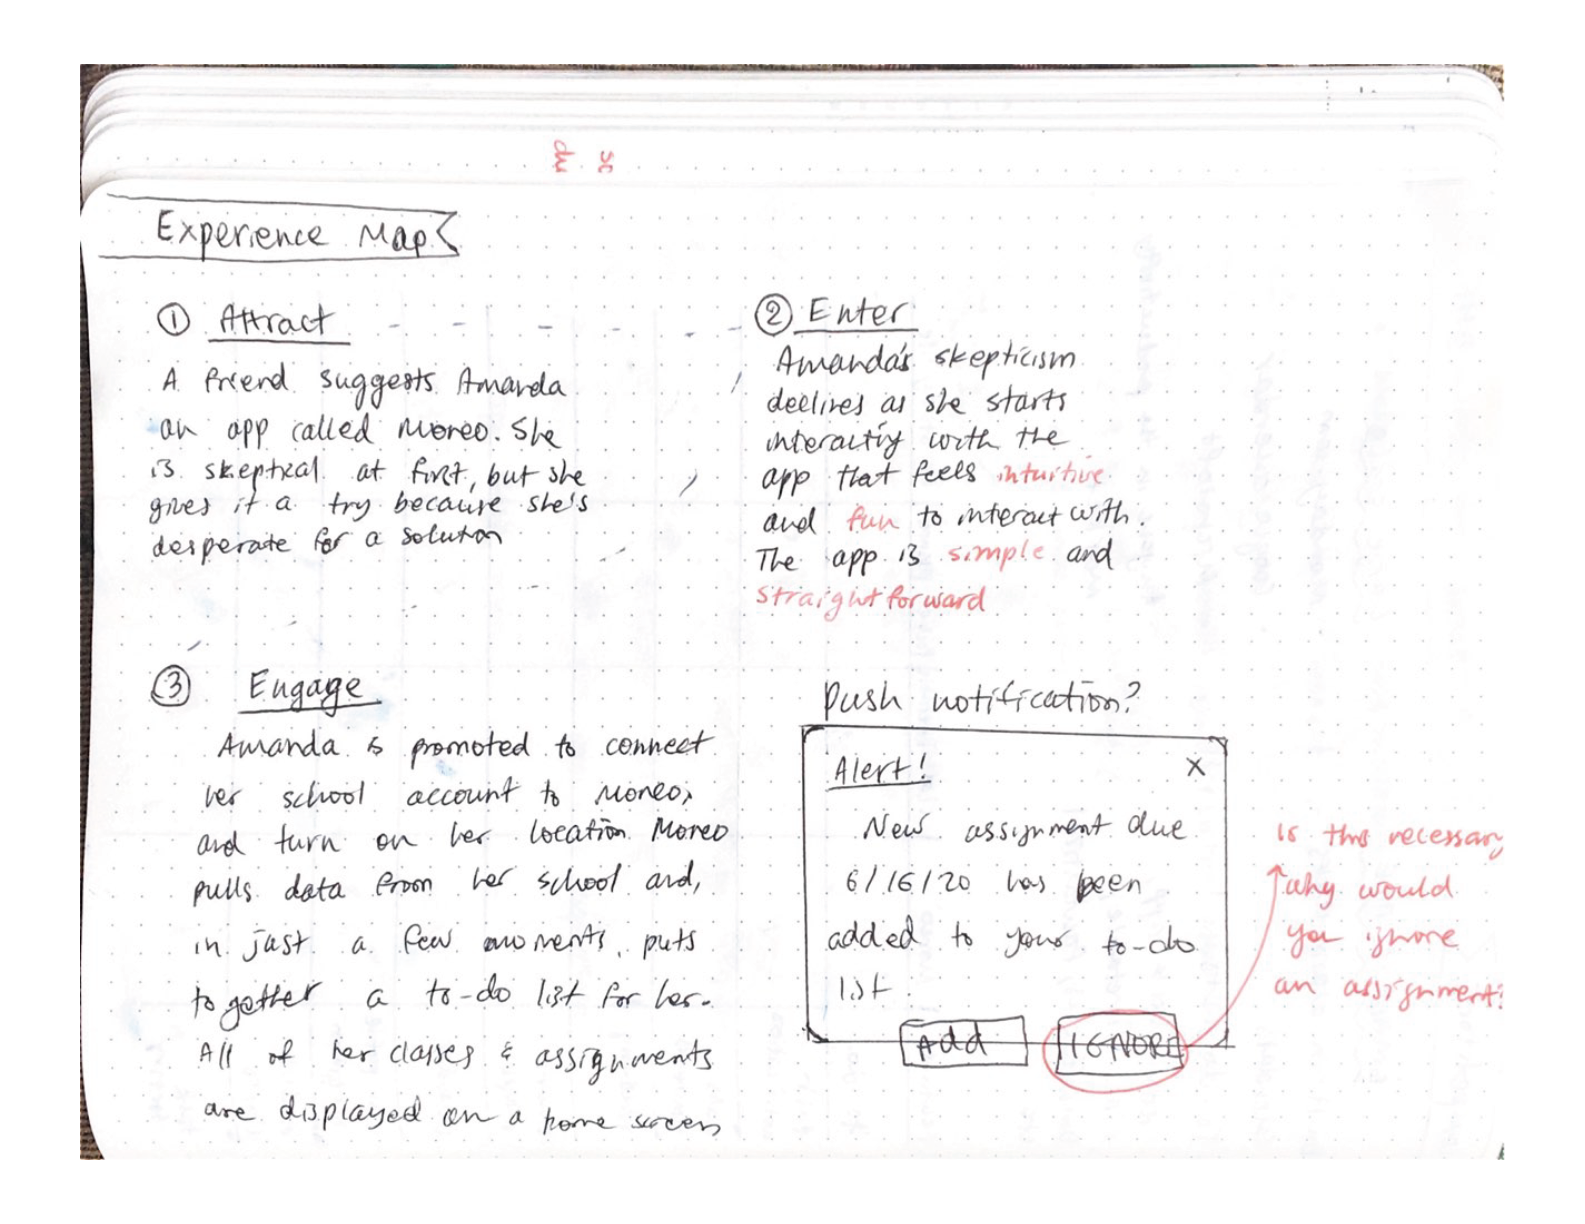 Experience Map
① Attract
A friend suggests Amanda
an app called Moneo. She
is skeptical at first, but she
gives it a try because she's
desperate for a solution
② Enter
Amanda's skepticism
declines as she starts
interacting with the
app that feels intuitive
and fun to interact with.
The app is simple and
straight forward
③ Engage
Amanda is promoted to connect
her school account to Moneo,
and turn on her location. Moneo
pulls data from her school and,
in just a few moments, puts
together a to-do list for her.
All of her classes & assignments
are displayed on a home screen
Push notification?
Alert! X
New assignment due
6/16/20 has been
added to your to-do
list.
Add IGNORE
is this necessary
why would
you ignore
an assignment?